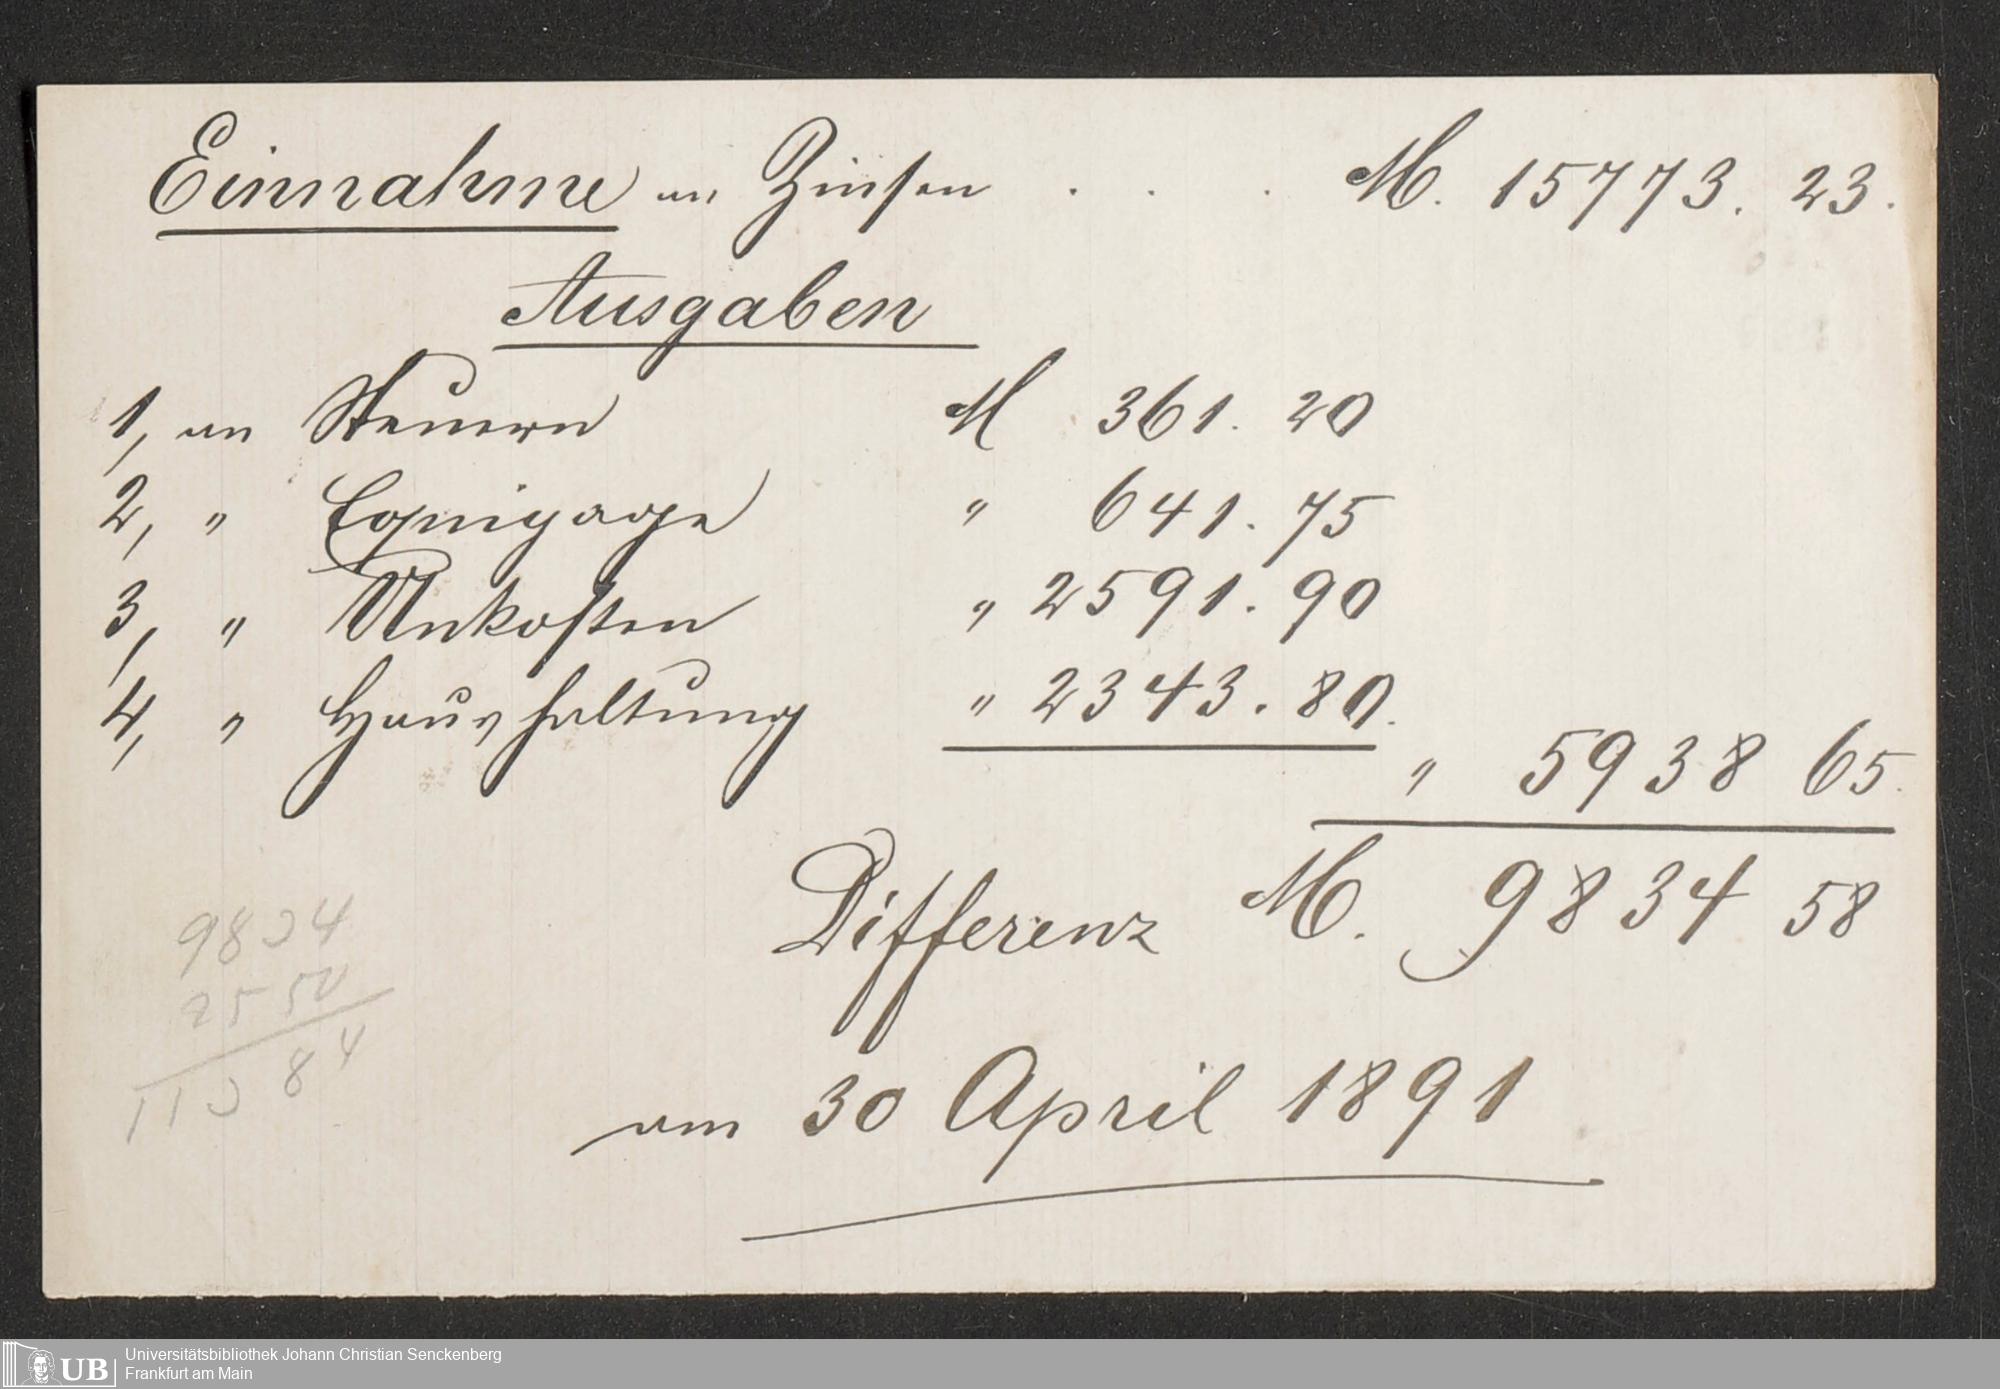 Einnahme an Zinsen . . . M. 15773. 23.
Ausgaben
1, an Steuern M 361. 20
2, " Equipage " 641. 75
3, " Unkosten " 2591. 90
4, " Haushaltung " 2343. 80.
" 5938 65.
Differenz M. 9834 58
am 30 April 1891
9834
2550
11384
UB Universitätsbibliothek Johann Christian Senckenberg
Frankfurt am Main